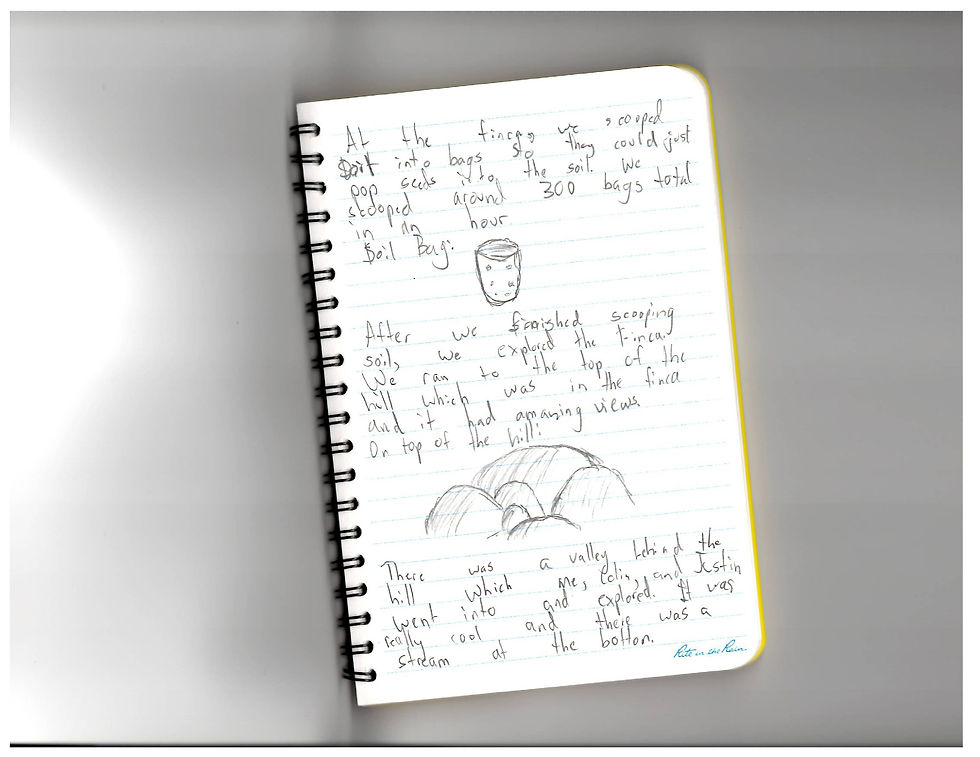 At the finca, we scooped
soil into bags so they could just
pop seeds into the soil. We
scooped around 300 bags total
in an hour
Soil Bag:
After we finished scooping
soil, we explored the finca.
We ran to the top of the
hill which was in the finca
and it had amazing views.
On top of the hill:
There was a valley behind the
hill which me, Colin, and Justin
went into and explored. It was
really cool and there was a
stream at the bottom.
Rite in the Rain